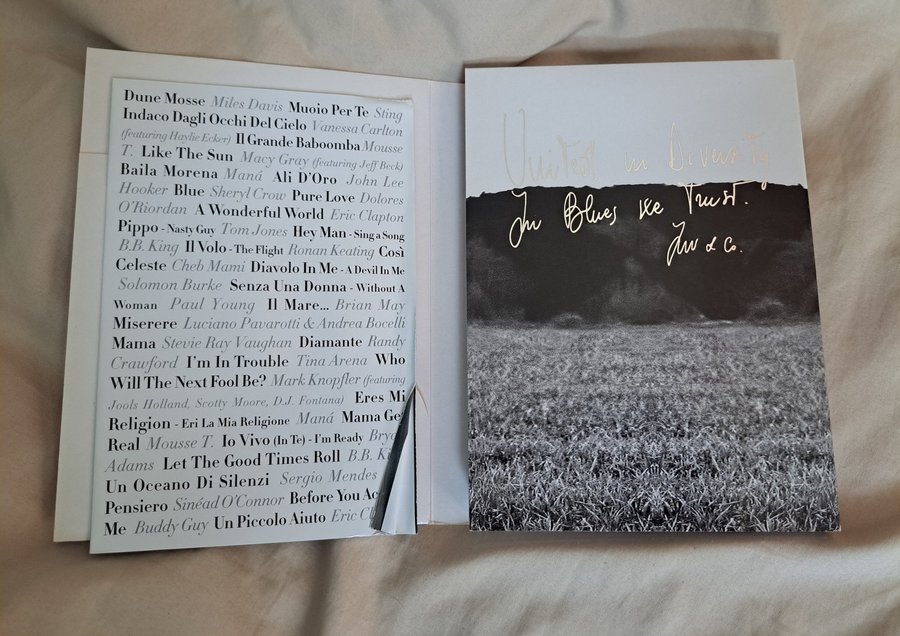 Dune Mosse Miles Davis Muoio Per Te Sting
Indaco Dagli Occhi Del Cielo Vanessa Carlton
(featuring Haylie Ecker) Il Grande Baboomba Mousse
T. Like The Sun Macy Gray (featuring Jeff Beck)
Baila Morena Maná Ali D'Oro John Lee
Hooker Blue Sheryl Crow Pure Love Dolores
O'Riordan A Wonderful World Eric Clapton
Pippo - Nasty Guy Tom Jones Hey Man - Sing a Song
B.B. King Il Volo - The Flight Ronan Keating Così
Celeste Cheb Mami Diavolo In Me - A Devil In Me
Solomon Burke Senza Una Donna - Without A
Woman Paul Young Il Mare... Brian May
Miserere Luciano Pavarotti & Andrea Bocelli
Mama Stevie Ray Vaughan Diamante Randy
Crawford I'm In Trouble Tina Arena Who
Will The Next Fool Be? Mark Knopfler (featuring
Jools Holland, Scotty Moore, D.J. Fontana) Eres Mi
Religion - Eri La Mia Religione Maná Mama Get
Real Mousse T. Io Vivo (In Te) - I'm Ready Brya
Adams Let The Good Times Roll B.B. Ki
Un Oceano Di Silenzi Sergio Mendes
Pensiero Sinéad O'Connor Before You Ac
Me Buddy Guy Un Piccolo Aiuto Eric Cl
United in Diversity
In Blues we Trust.
& Co.